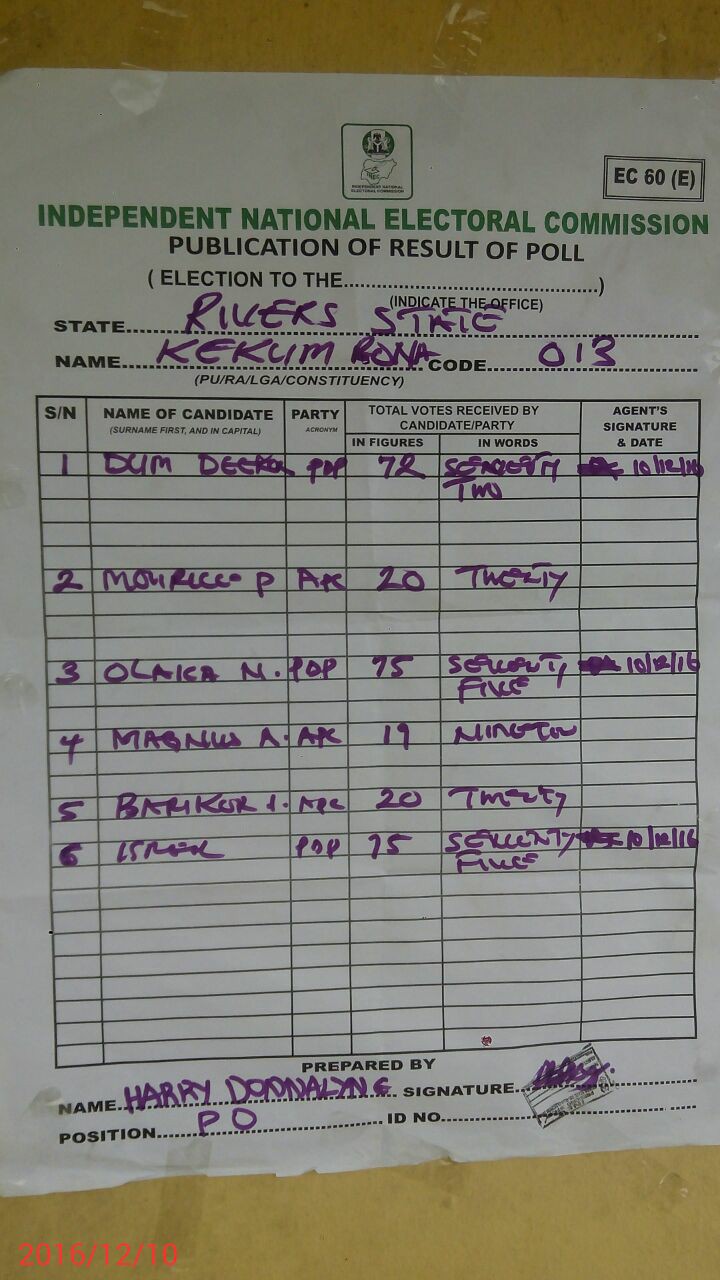 EC 60 (E)
INDEPENDENT NATIONAL ELECTORAL COMMISSION
PUBLICATION OF RESULT OF POLL
( ELECTION TO THE..............................................)
(INDICATE THE OFFICE)
STATE RIVERS STATE
NAME KEKUM BONA CODE 013
(PU/RA/LGA/CONSTITUENCY)
S/N NAME OF CANDIDATE (SURNAME FIRST, AND IN CAPITAL) PARTY ACRONYM TOTAL VOTES RECEIVED BY CANDIDATE/PARTY IN FIGURES IN WORDS AGENT'S SIGNATURE & DATE
1 DUM PDP 72 SEVENTY TWO 10/12/16
2 P APC 20 TWENTY
3 OLAKA N. PDP 75 SEVENTY FIVE 10/12/16
4 MAGNUS A. APC 19
5 BARIKOR I. APC 20 TWENTY
6 PDP 75 SEVENTY FIVE 10/12/16
PREPARED BY
NAME HARRY SIGNATURE
POSITION PO ID NO
2016/12/10